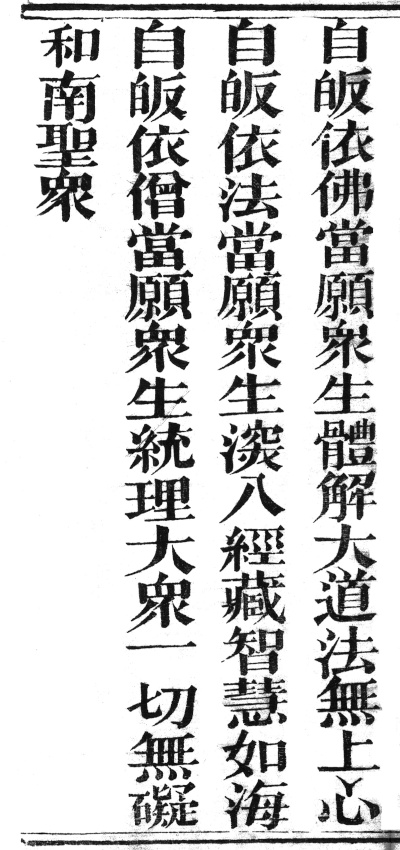 自皈依佛當願衆生體解大道法無上心
自皈依法當願衆生深入經藏智慧如海
自皈依僧當願衆生統理大衆一切無礙
和南聖衆